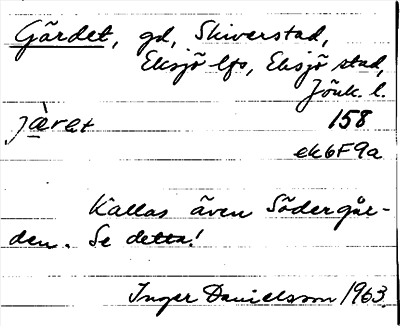 Gärdet, gd, Skiverstad,
Eksjö lfs, Eksjö stad,
Jönk. l.
jä̀ret 158
ek6F9a
Kallas även Södergår-
den. Se detta!
Inger Danielsson 1963.